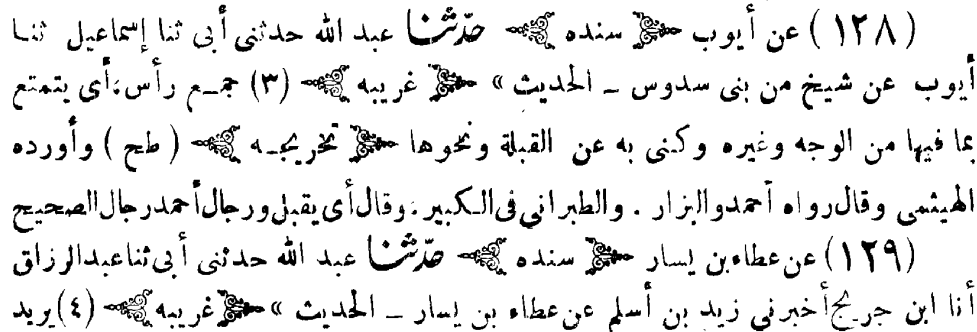 (١٢٨) عن أيوب سنده حدّثنا عبد الله حدثنى أبى ثنا إسماعيل ثنا
أيوب عن شيخ من بنى سدوس ــ الحديث » غريبه (٣) جمع رأس، أى يتمتع
بما فيها من الوجه وغيره وكنى به عن القبلة ونحوها تخريجه ( طح ) وأورده
الهيثمى وقال رواه أحمد والبزار . والطبرانى فى الكبير . وقال أى يقبل ورجال أحمد رجال الصحيح
(١٢٩) عن عطاء بن يسار سنده حدّثنا عبد الله حدثنى أبى ثنا عبد الرزاق
أنا ابن جريج أخبرنى زيد بن أسلم عن عطاء بن يسار ــ الحديث » غريبه (٤) يريد